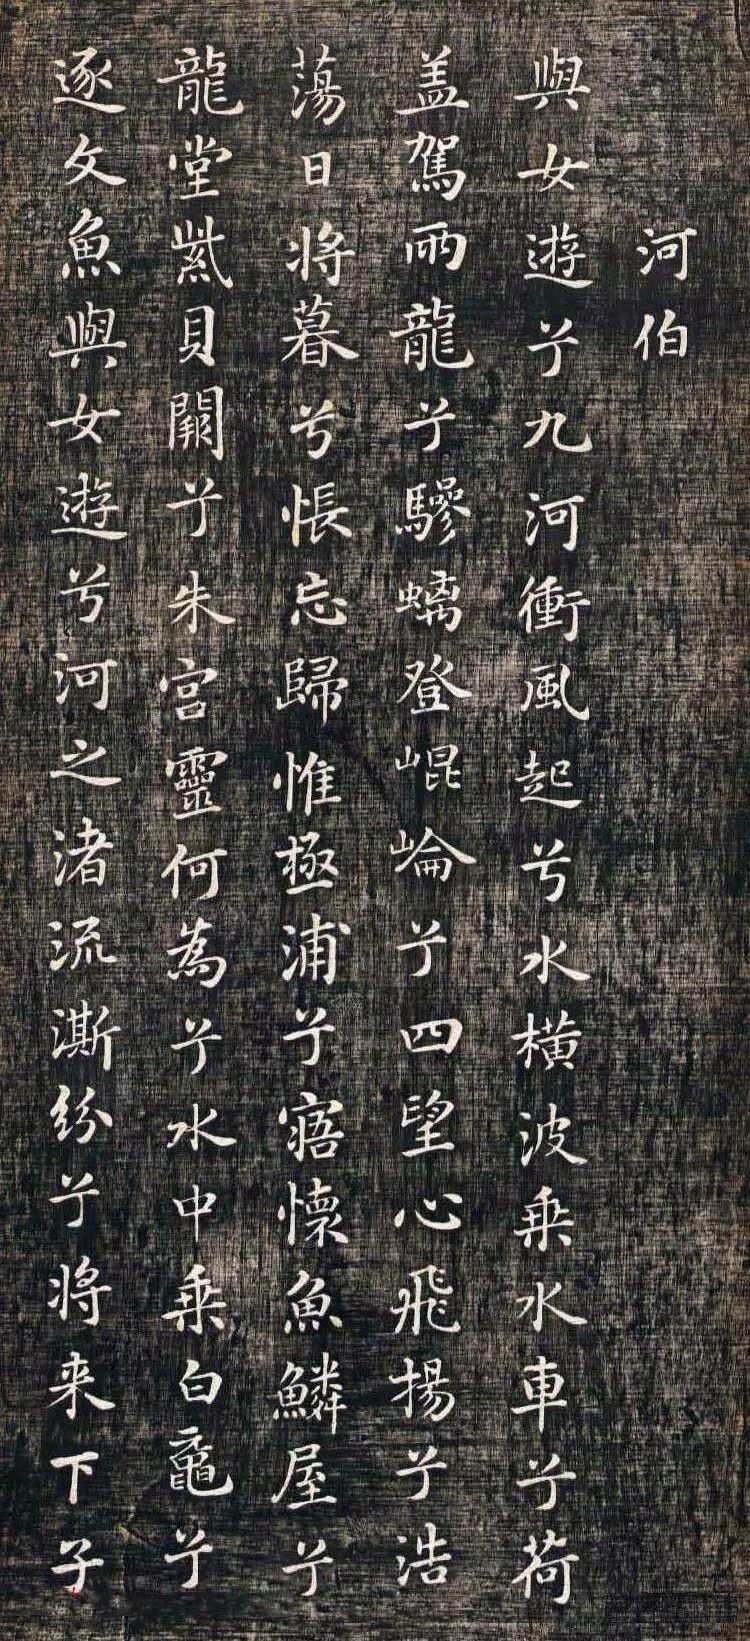 河伯
與女遊兮九河衝風起兮水橫波乗水車兮荷
盖駕兩龍兮驂螭登崐崘兮四望心飛揚兮浩
蕩日将暮兮悵忘歸惟極浦兮寤懷魚鱗屋兮
龍堂紫貝闕兮朱宮靈何為兮水中乗白黿兮
逐文魚與女遊兮河之渚流澌紛兮将来下子